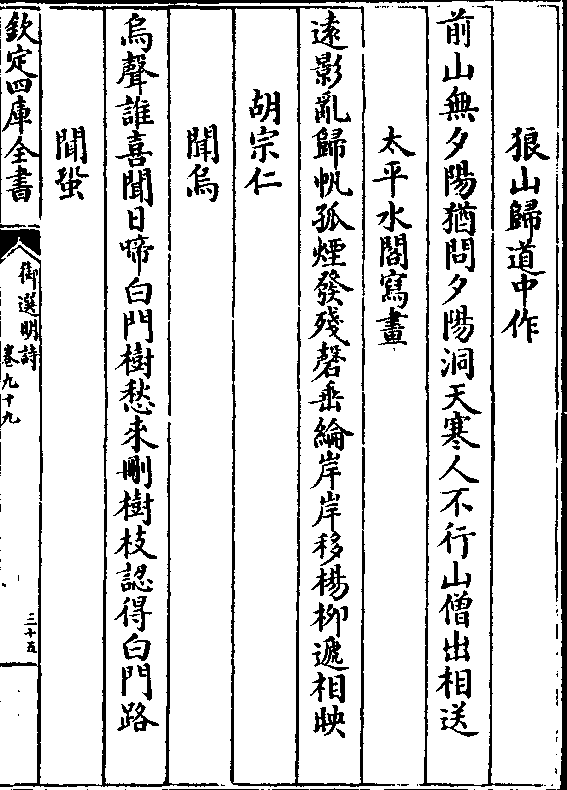 狼山歸道中作
前山無夕陽猶問夕陽洞天寒人不行山僧出相送
太平水閣寫畫
遠影亂歸帆孤煙發殘磬垂綸岸岸移楊柳遞相映
胡宗仁
聞烏
烏聲誰喜聞日啼白門樹愁来刪樹枝認得白門路
聞蛩
欽定四庫全書
御選明詩
卷九十九
三十五